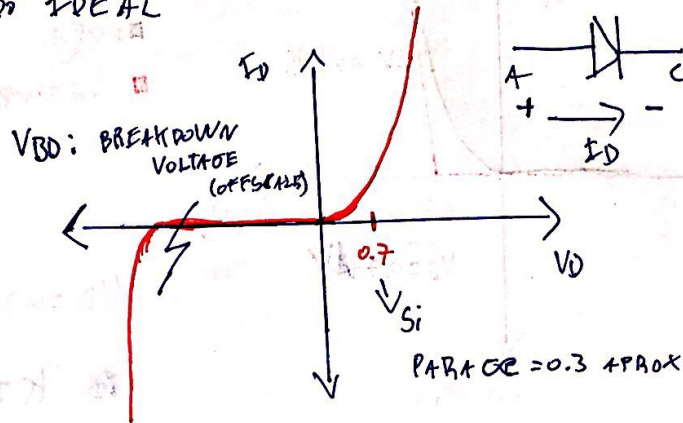 IDEAL
I_D
A
C
+
-
I_D
V_BD: BREAKDOWN
VOLTAGE
0.7
V_D
Si
PARA GE = 0.3 APROX